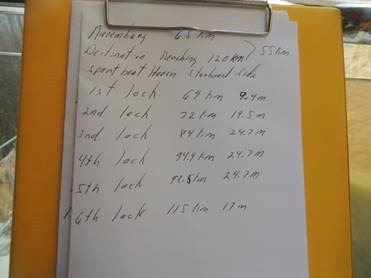 Nuremburg 65 km
Destination Bamburg 120 km } 55 km
sport boat Haven starboard side
1st lock 69 km 9.4 m
2nd lock 72 km 19.5 m
3nd lock 84 km 24.7 m
4th lock 94.9 km 24.7 m
5th lock 98.5 km 24.7 m
6th lock 115 km 17 m